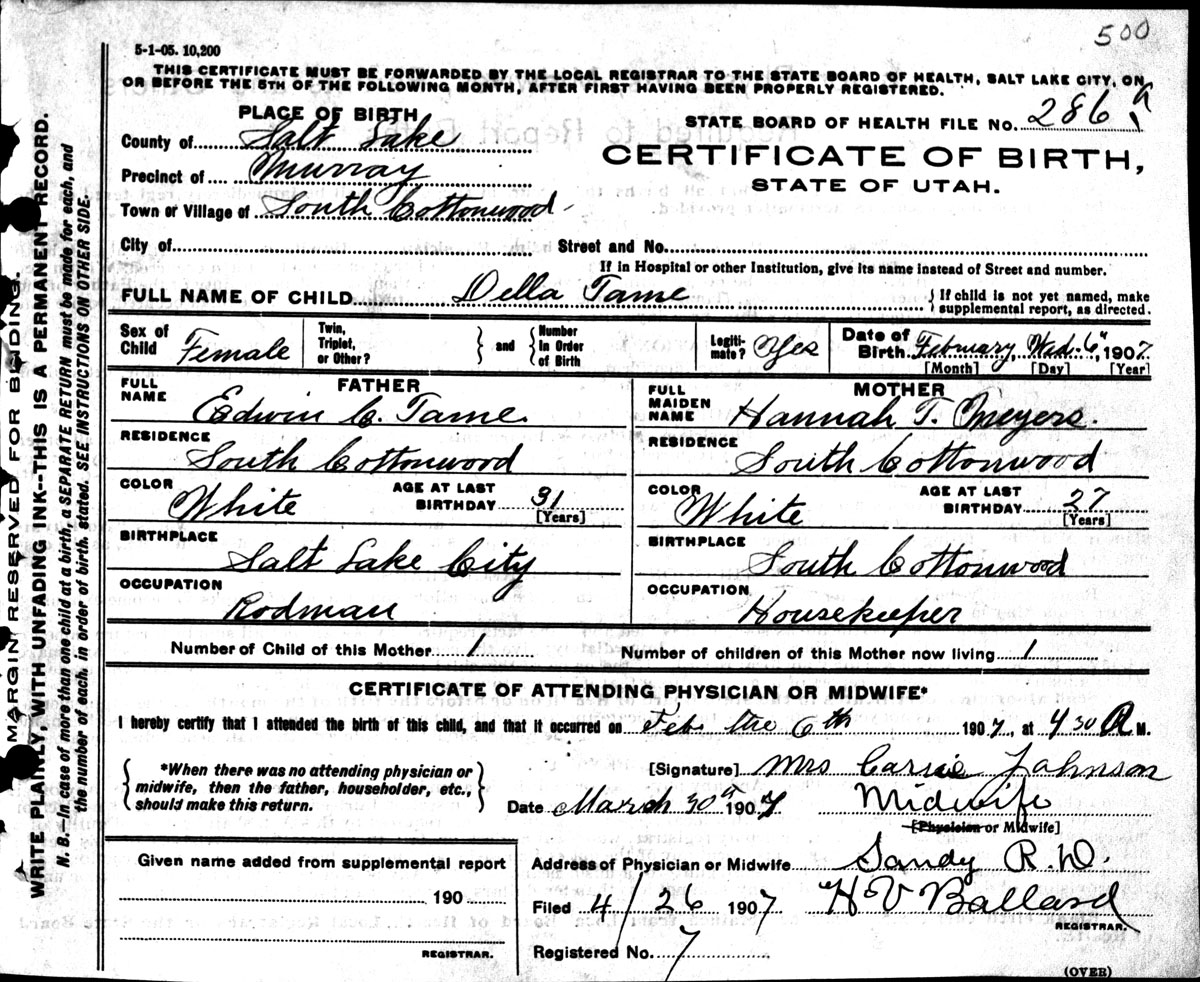 500
5-1-05. 10,200
THIS CERTIFICATE MUST BE FORWARDED BY THE LOCAL REGISTRAR TO THE STATE BOARD OF HEALTH, SALT LAKE CITY, ON
OR BEFORE THE 5TH OF THE FOLLOWING MONTH, AFTER FIRST HAVING BEEN PROPERLY REGISTERED.
PLACE OF BIRTH
STATE BOARD OF HEALTH FILE NO. 286
County of Salt Lake
CERTIFICATE OF BIRTH,
Precinct of Murray
STATE OF UTAH.
Town or Village of South Cottonwood
City of Street and No.
If in Hospital or other Institution, give its name instead of Street and number.
FULL NAME OF CHILD Della Tame { If child is not yet named, make
supplemental report, as directed.
Sex of Child Female Twin, Triplet, or Other? } and { Number in Order of Birth Legiti-mate? Yes Date of Birth February, Wed. 6", 1907
[Month] [Day] [Year]
FATHER
FULL NAME Edwin C. Tame.
RESIDENCE
South Cottonwood
COLOR White AGE AT LAST BIRTHDAY 31
[Years]
BIRTHPLACE
Salt Lake City
OCCUPATION
Rodman
MOTHER
FULL MAIDEN NAME Hannah T. Meyers.
RESIDENCE
South Cottonwood
COLOR White AGE AT LAST BIRTHDAY 27
[Years]
BIRTHPLACE
South Cottonwood
OCCUPATION
Housekeeper
Number of Child of this Mother 1 Number of children of this Mother now living 1
CERTIFICATE OF ATTENDING PHYSICIAN OR MIDWIFE*
I hereby certify that I attended the birth of this child, and that it occurred on Feb. the 6th 1907, at 4 30 A M.
{ *When there was no attending physician or
midwife, then the father, householder, etc.,
should make this return. }
[Signature] Mrs Carrie Johnson
Date March 30th 1907 Midwife
[Physician or Midwife]
Given name added from supplemental report
190
REGISTRAR.
Address of Physician or Midwife Sandy R.D.
Filed 4/26 1907 H V Ballard
REGISTRAR.
Registered No. 7
(OVER)
MARGIN RESERVED FOR BINDING.
WRITE PLAINLY, WITH UNFADING INK--THIS IS A PERMANENT RECORD.
N. B.—In case of more than one child at a birth, a SEPARATE RETURN must be made for each, and
the number of each, in order of birth, stated. SEE INSTRUCTIONS ON OTHER SIDE.